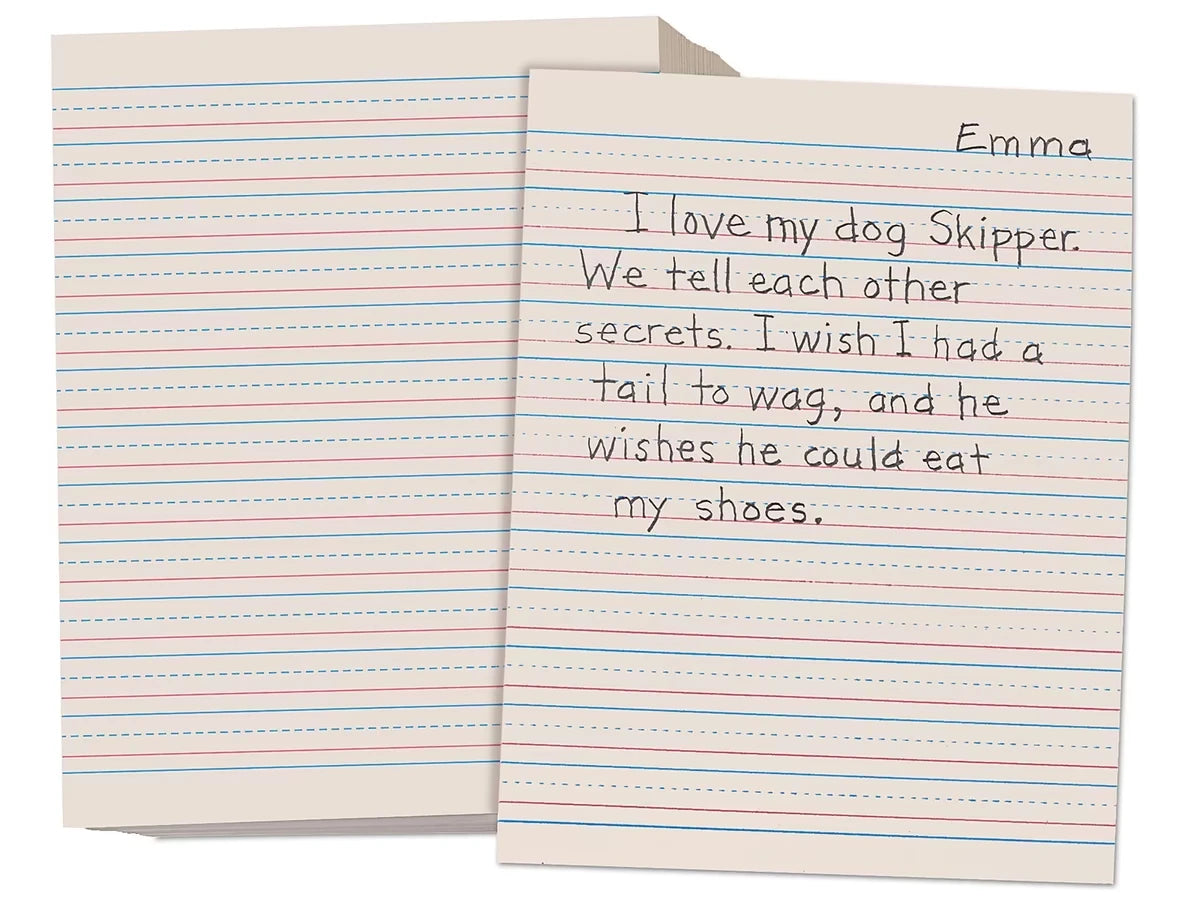 Emma
I love my dog Skipper.
We tell each other
secrets. I wish I had a
tail to wag, and he
wishes he could eat
my shoes.